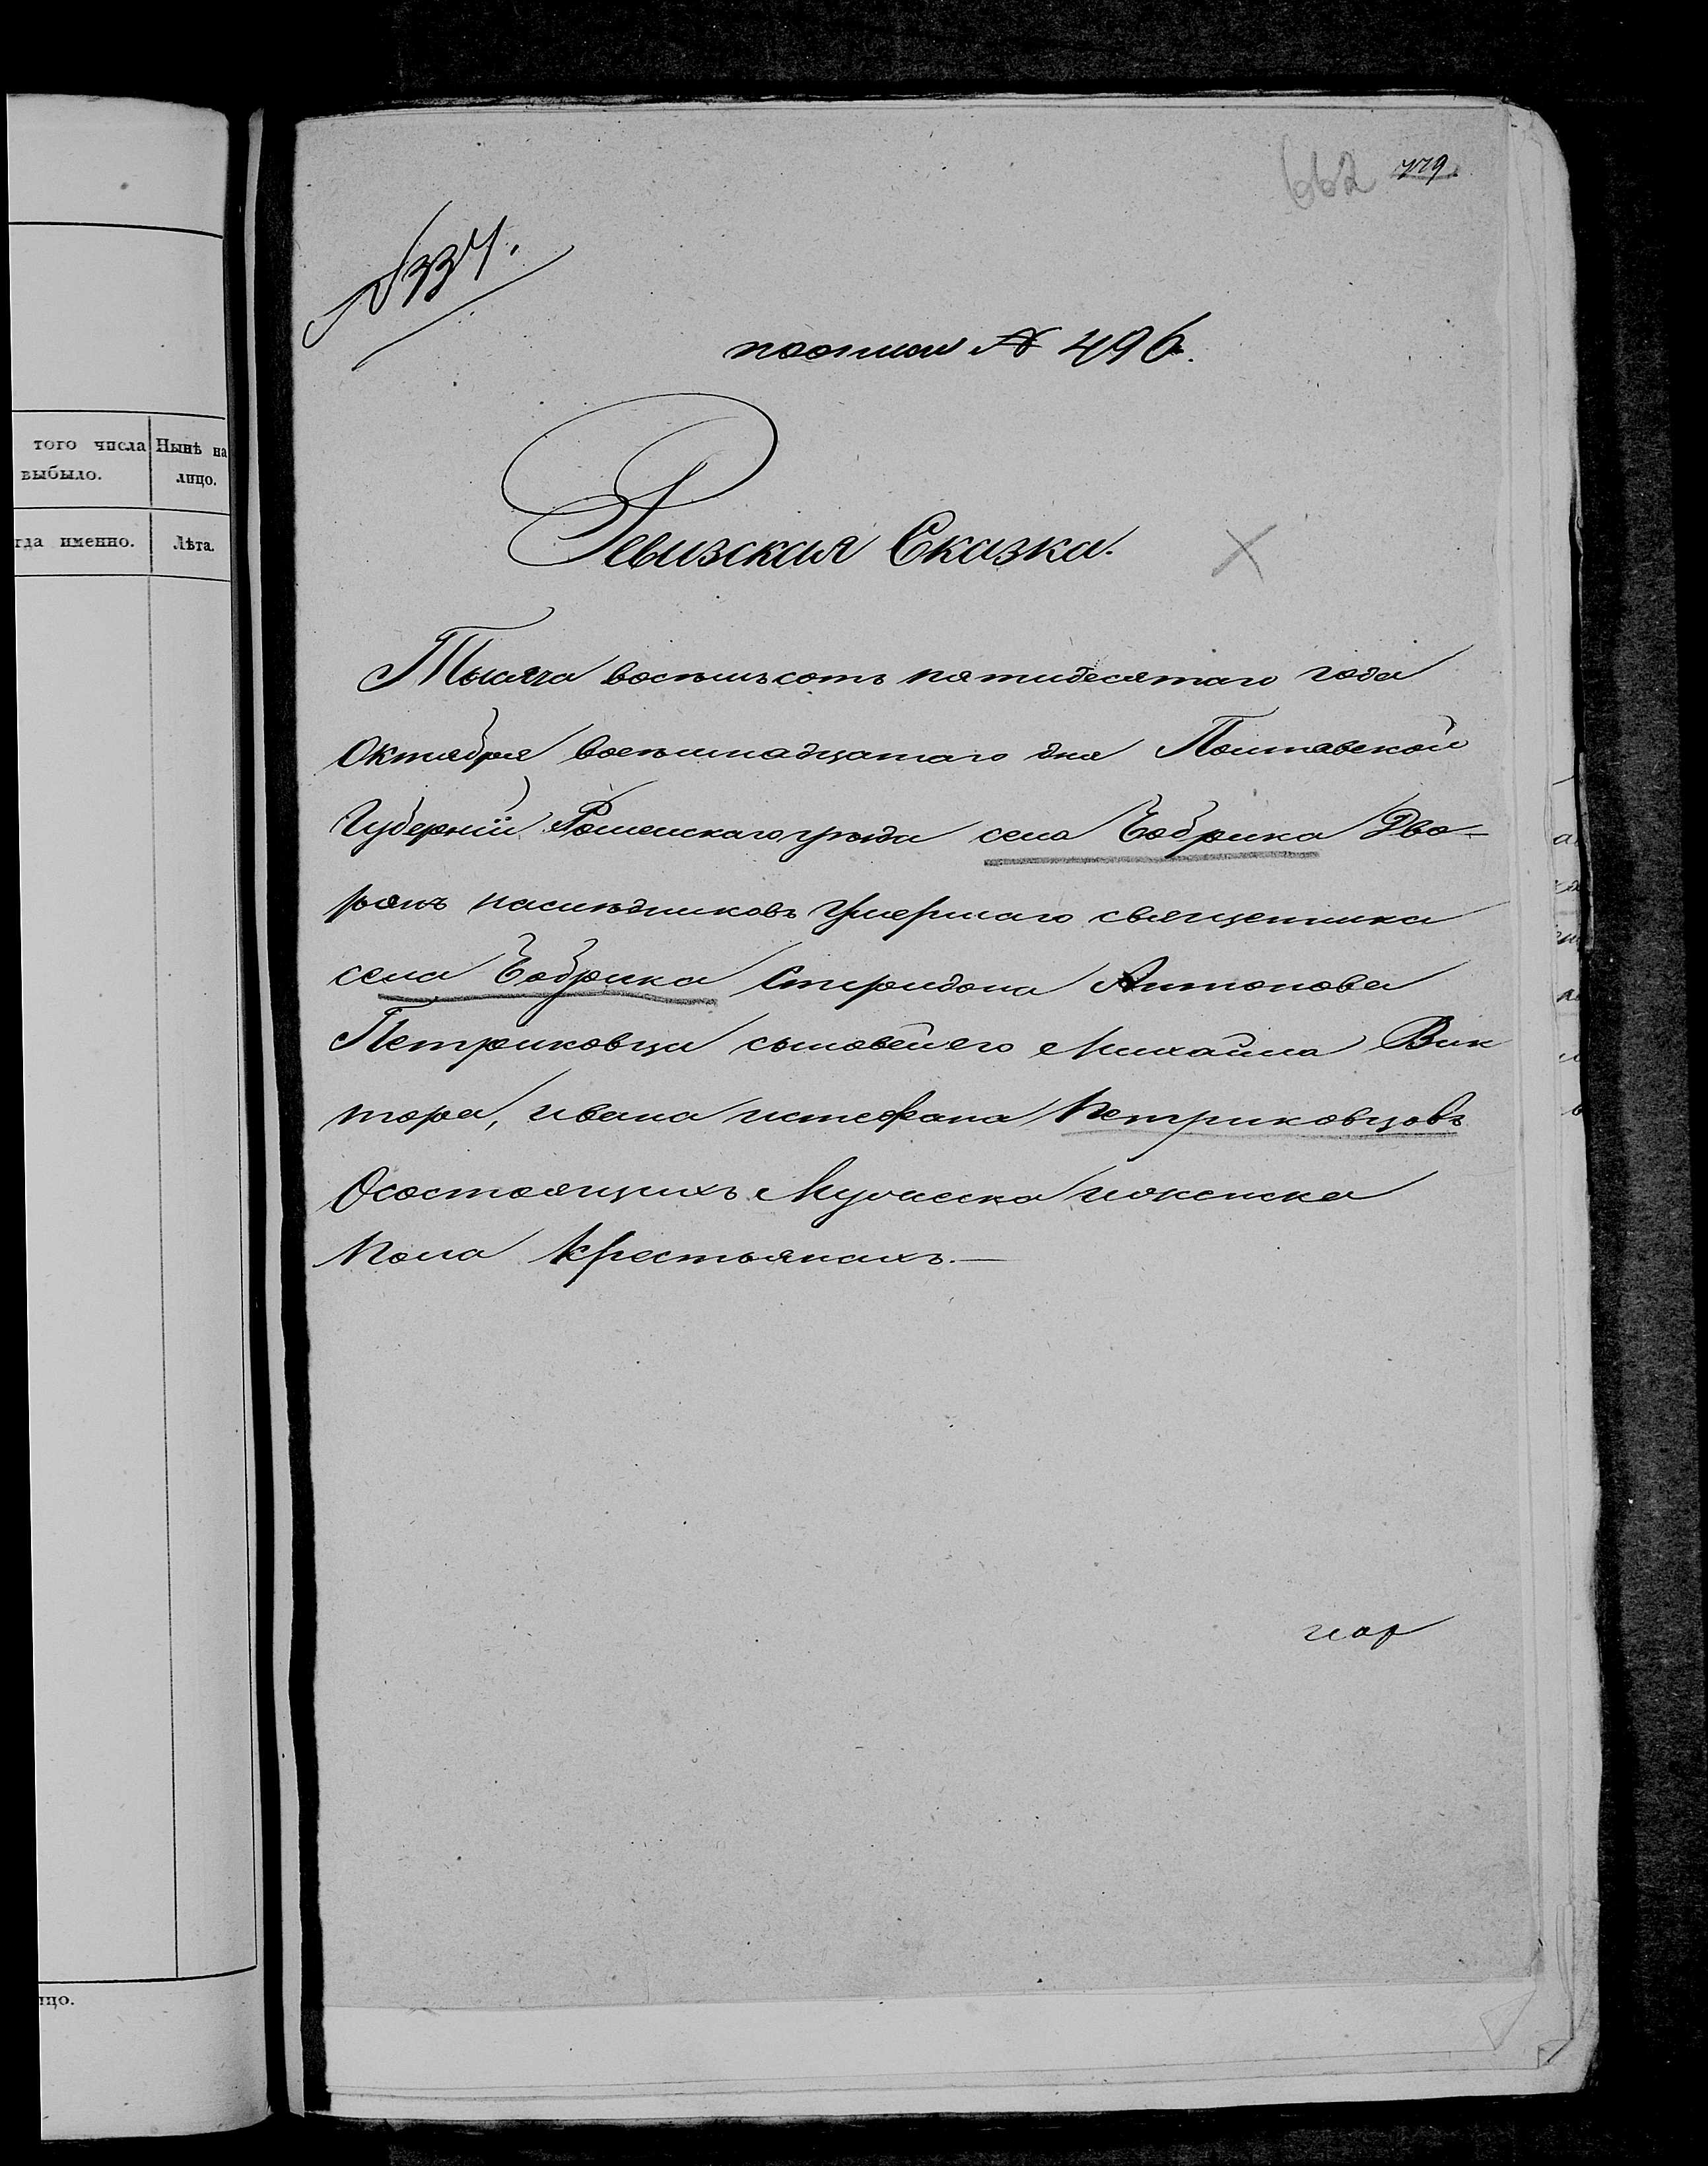 662 779
№ 334.
по описи № 496.
Ревизская Сказка.
Тысяча восемьсотъ пятидесятаго года
Октября восемнадцатаго дня Полтавской
Губерніи Роменскаго уѣзда села Бобрика Дво-
рянъ наслѣдниковъ Умершаго священника
села Бобрика Спиридона Антонова
Петриковца сыновей его Михайла Вик
тора, ивана истефана Петриковцовъ
Осостоящихъ Мужеска иженска
Пола Крестьянахъ.—
того числа
выбыло.
Нынѣ на
лицо.
гда именно.
Лѣта.
ицо.